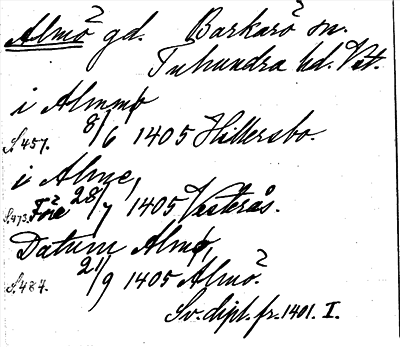 Almö gd. Barkarö sn.
Tuhundra hd. Vstm.
i Almmø
S.457. 8/6 1405 Hillersbo.
i Alme,
S.473. Före 28/7 1405 Västerås.
Datum Almø,
S.484. 21/9 1405 Almö.
Sv. dipl. fr. 1401. I.